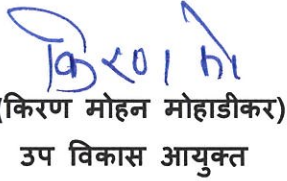 किरण मो
(किरण मोहन मोहाडीकर)
उप विकास आयुक्त